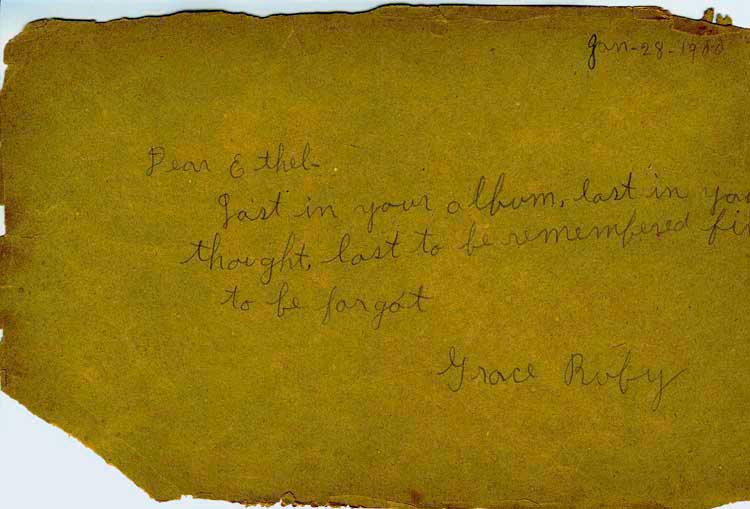 Jan-28-1900
Dear Ethel-
Last in your album, last in you
thought, last to be remembered fi
to be forgot
Grace Ruby